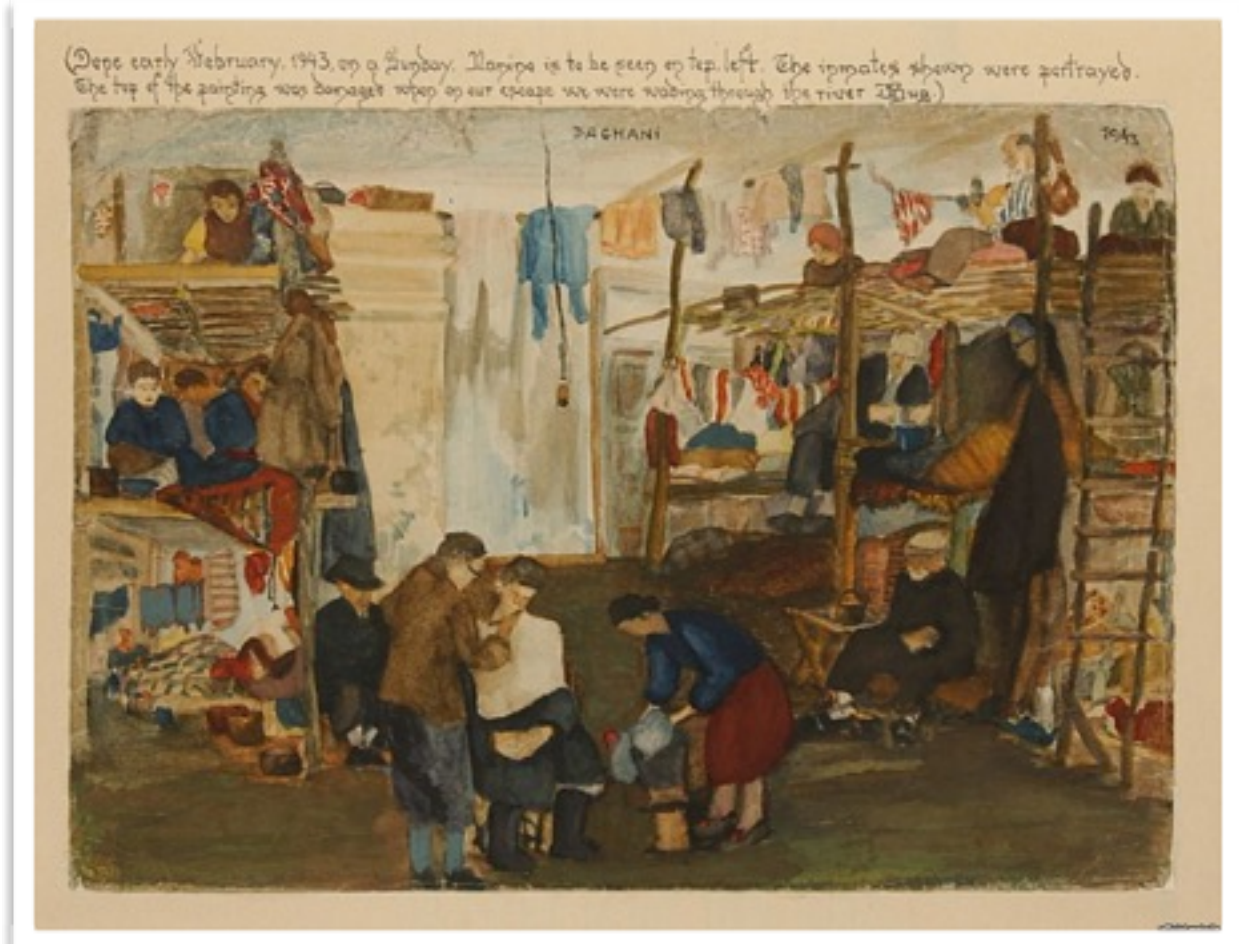 (Done early February, 1943, on a Sunday. Nanino is to be seen on top, left. The inmates shown were portrayed.
The top of the painting was damaged when on our escape we were wading through the river Bug.)
DAGHANI 1943